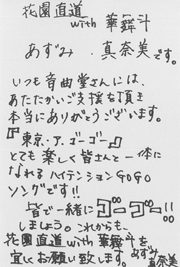 花園直道
with 華舞斗
あずみ・真奈美です。
いつも音曲堂さんには、
あたたかいご支援を頂き
本当にありがとうございます。
『東京・ア・ゴーゴー』
とても楽しく皆さんと一体に
なれるハイテンションGOGO
ソングです!!
皆で一緒にゴーゴー!!
しましょう。これからも、
花園直道with華舞斗を、
宜しくお願い致します。あずみ
真奈美